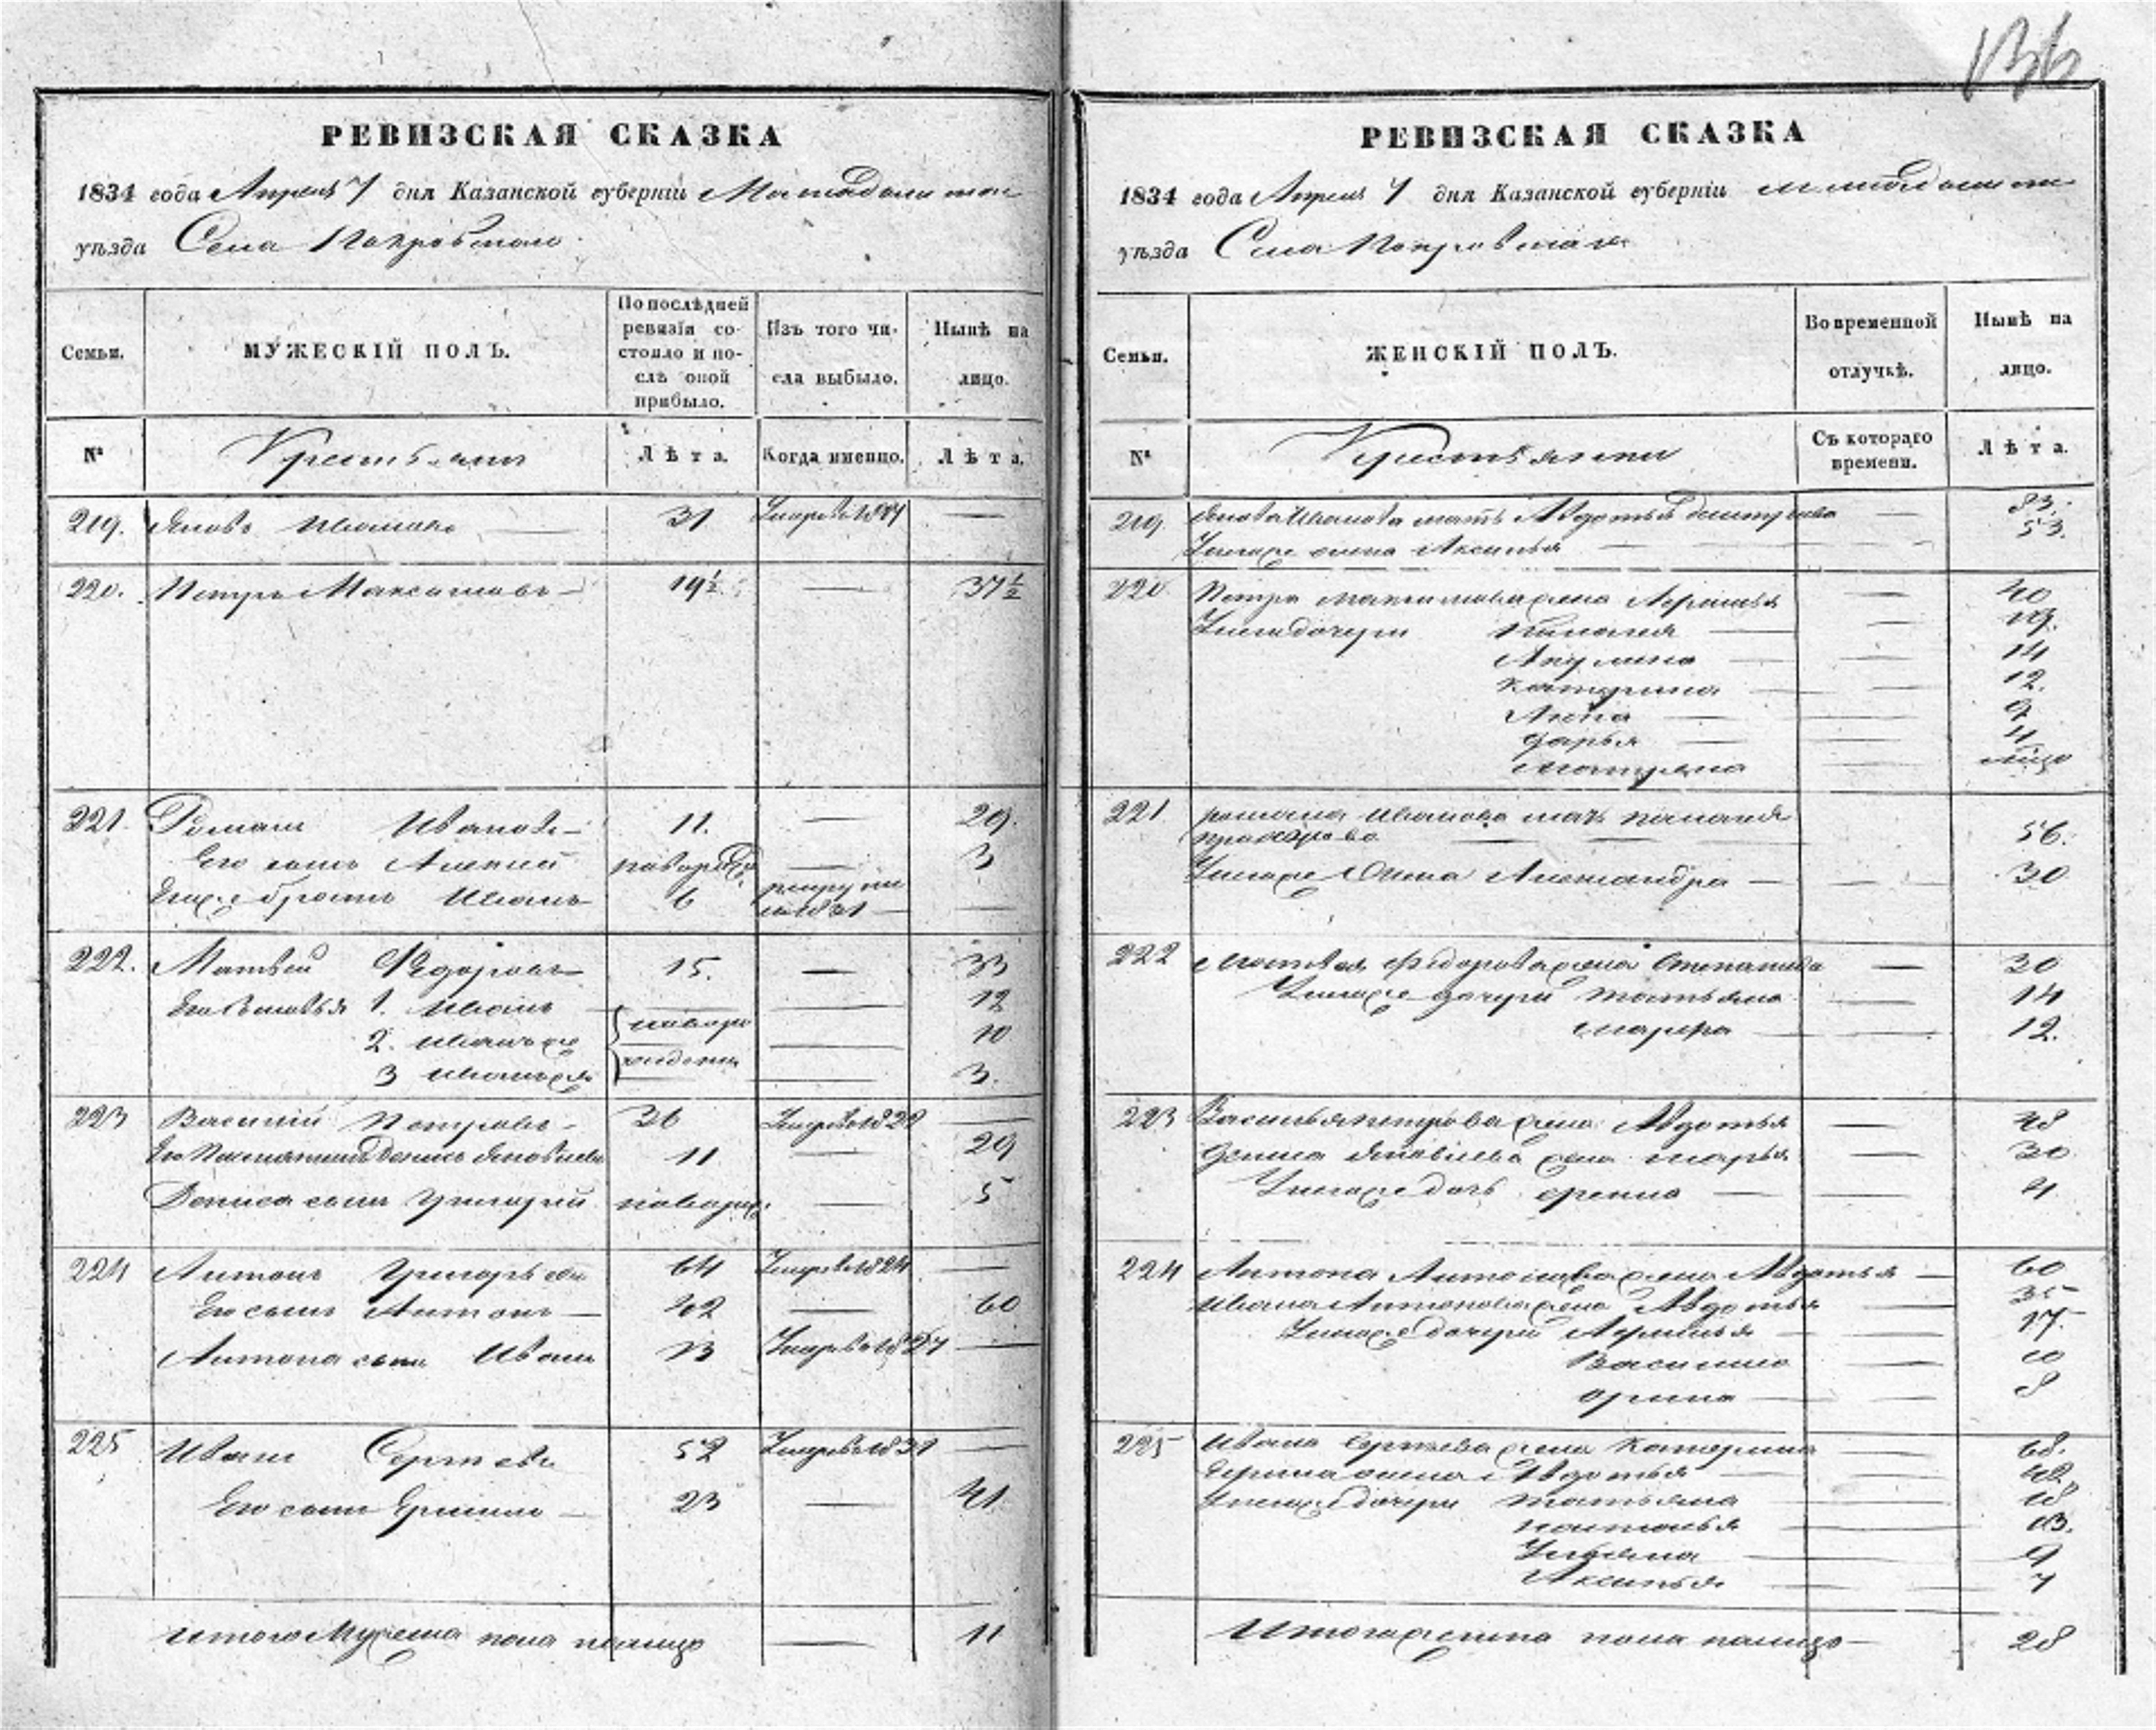 136
РЕВИЗСКАЯ СКАЗКА
1834 года Апреля 7 дня Казанской губерніи Мамадышскаго
уѣзда Села Покровскаго
Семьи.
МУЖЕСКІЙ ПОЛЪ.
По послѣдней ревизіи состояло и послѣ оной прибыло.
Изъ того числа выбыло.
Нынѣ на лицо.
№
Крестьяне
Лѣта.
Когда именно.
Лѣта.
219. Яковъ Ивановъ 31
220. Петръ Максимовъ 19½ 37½
221. Романъ Ивановъ 11. 29.
Его сынъ Алексей новорожд 3
Иванъ 6
222. Матвей Федоровъ 15. 33
Его сыновья 1. Иванъ 12
2. Иванъ же новоро 10
3 Иванъ же жденны 3.
223 Василий Петровъ 36 Умер в 1822
Его племянникъ Денисъ Яковлевъ 11 29
Дениса сынъ Григорий новорож: 5
224 Антонъ Григорьевъ 64 Умер в 1824
Его сынъ Антонъ 42 60
Антона сынъ Иванъ 23
225 Иванъ Сергеевъ 52
Его сынъ 23 41
Итого Мужеска пола налицо 11
РЕВИЗСКАЯ СКАЗКА
1834 года Апреля 7 дня Казанской губерніи Мамадышскаго
уѣзда Села Покровскаго
Семьи.
ЖЕНСКІЙ ПОЛЪ.
Во временной отлучкѣ.
Нынѣ на лицо.
№
Крестьянки
Съ котораго времени.
Лѣта.
219. Якова Иванова мать Авдотья 83.
жена Аксинья 53.
220 Петра Максимова жена 40
дочери 19.
Акулина 14
Катерина 12.
Анна 9
Дарья 4
Матрена
221. Романа Иванова мать
Прохорова 56.
жена Александра 30
222 Матвея Федорова жена Степанида 30
дочери Татьяна 14
Марфа 12.
223 Василья Петрова жена Авдотья 48
Дениса Яковлева жена Марья 30
дочь 4
224 Антона Антонова жена Авдотья 60
Ивана Антонова жена Авдотья 35
дочери 17.
10
Орина 8
225 Ивана Сергеева жена Катерина 68.
жена Авдотья 42
дочери Татьяна 18
Наталья 13.
Ульяна 9
Аксинья 7
Итого женска пола налицо 28